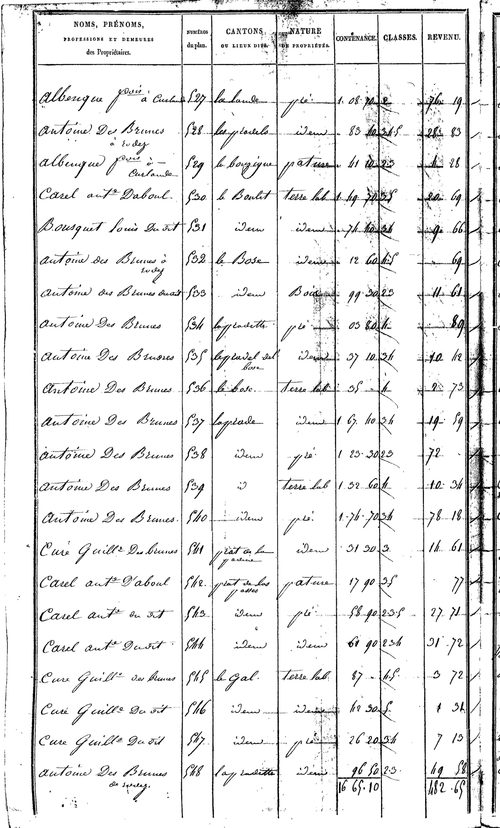 NOMS, PRÉNOMS, PROFESSIONS ET DEMEURES des Propriétaires. NUMÉROS du plan. CANTONS OU LIEUX DITS. NATURE DE PROPRIÉTÉS. CONTENANCE. CLASSES. REVENU.
Albenque à Curlande 527 la lande pré 1 08 70 2 76 19
Antoine Des Brunes à rodez 528 les pradels idem 83 10 345 28 83
albenque à Curlande 529 le bouzigue pature 41 10 23 4 28
Carel ant.e Daboul 530 le Boulet terre lab 1 49 70 35 20 69
Bousquet louis du dit 531 idem idem 74 40 34 9 66
antoine des Brunes à rodez 532 le Bosc idem 12 60 45 69
antoine des Brunes 533 idem Bois 99 30 23 11 61
antoine Des Brunes 534 lapradette pré 03 80 4 89
antoine Des Brunes 535 lepradel del bosc idem 37 10 34 10 42
antoine Des Brunes 536 le bosc terre lab 35 4 2 73
antoine Des Brunes 537 laprade idem 1 67 40 34 19 59
antoine Des Brunes 538 idem pré 1 23 30 23 72
Antoine Des Brunes 539 id terre lab 1 32 60 4 10 34
Antoine Des Brunes 540 idem pré 1 74 70 34 78 18
Curé Guill.e des brunes 541 prat de la idem 31 30 3 14 61
Carel ant.e D'aboul 542 prat de las pature 17 90 35 77
Carel ant.e du dit 543 idem pré 58 90 235 27 71
Carel ant.e Du dit 544 idem idem 61 90 234 31 72
Cure Guill.e des brunes 545 le Gal terre lab 87 45 3 72
Curé Guill.e Du dit 546 idem idem 42 30 5 1 34
Cure Guill.e Du dit 547 idem pré 26 20 34 7 13
antoine Des Brunes de rodez 548 lapradette idem 96 50 23 49 58
16 65 10 482 65